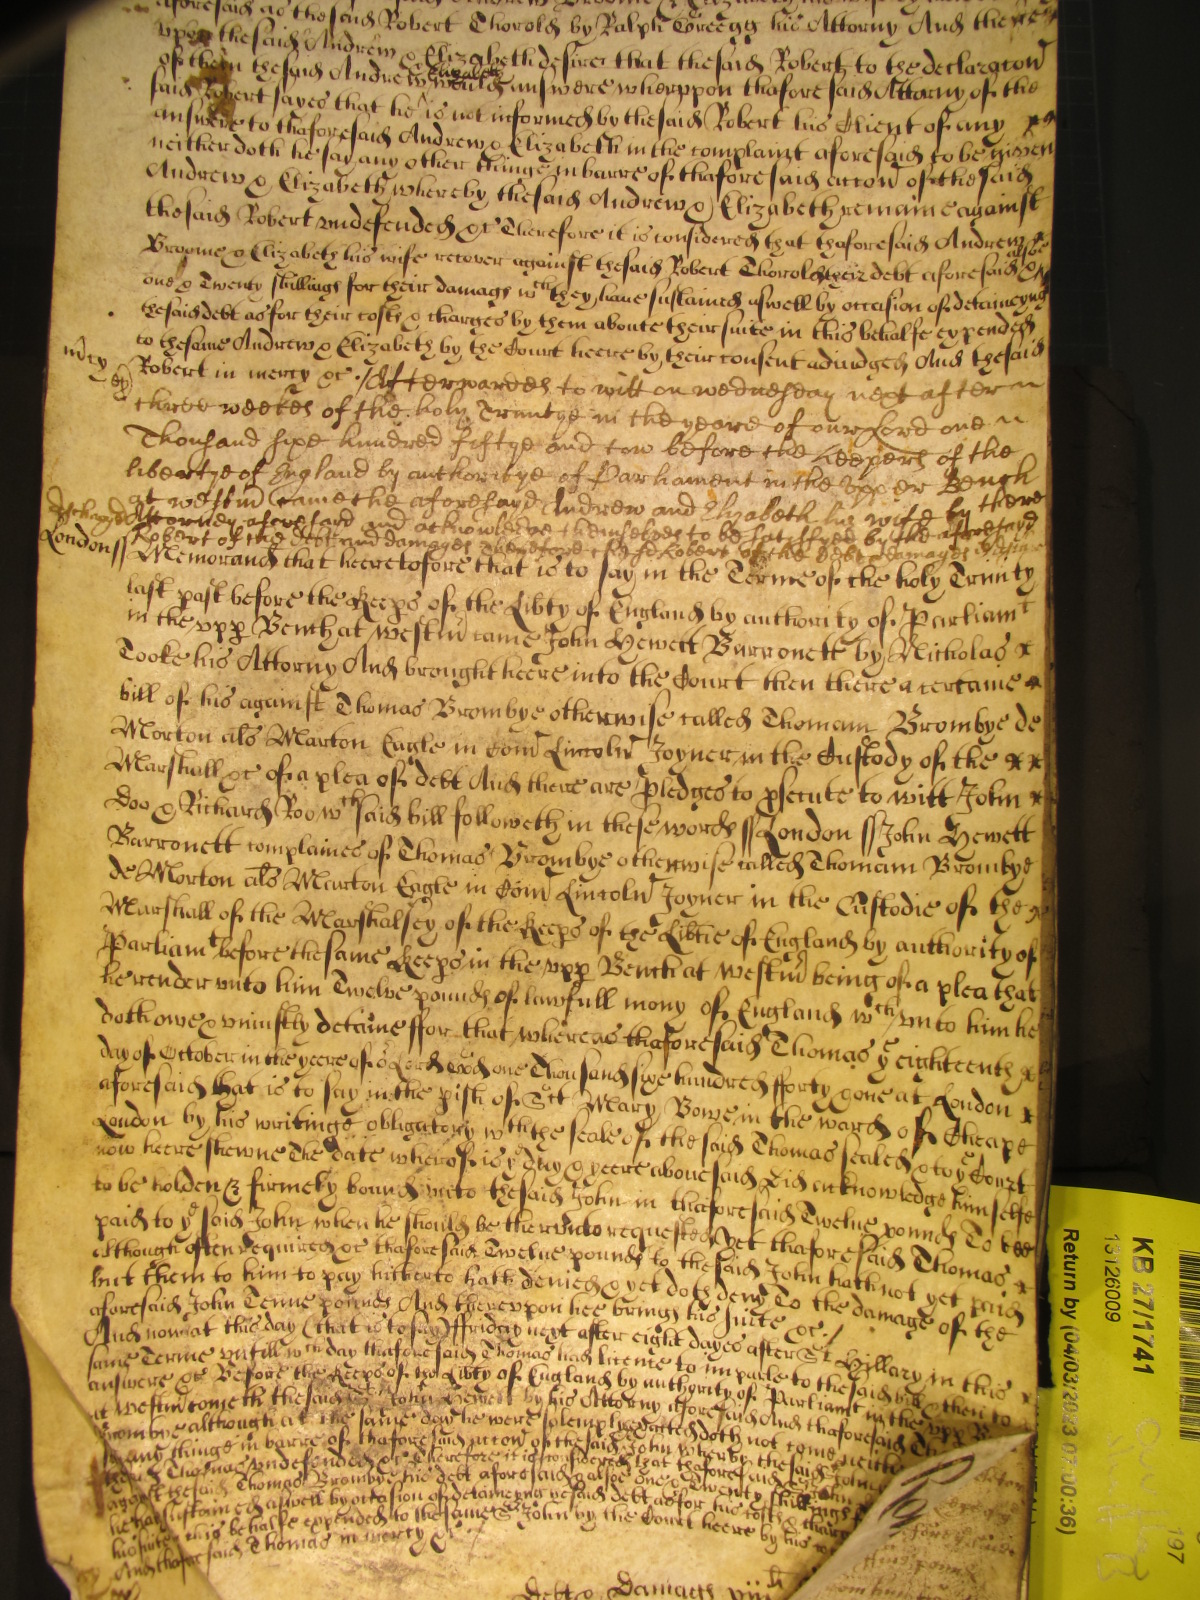 aforesaid as the said Robert Thorold by Ralph Greegg his Attorny And
vpon the said Andrew & Elizabeth desires that the said Robert to the declaracon
of them the said Andrew & Elizabeth would answere wherppon thaforesaid Attorny of the
said Robert sayes that he is not informed by the said Robert his Client of any
answere to thaforesaid Andrew & Elizabeth in the complaint aforesaid to be given
neither doth he say any other thinge in barre of thaforesaid accon of the said
Andrew & Elizabeth whereby the said Andrew & Elizabeth remaine against
the said Robert vndefended &c Therefore it is considered that thaforesaid Andrew
Broome & Elizabeth his wife recover against the said Robert Thorold their debt aforesaid & alsoe
one & Twenty shillings for their damags wch they have sustained aswell by occasion of detaineyng
the said debt as for their costs & charges by them aboute their suite in this behalfe expended
to the same Andrew & Elizabeth by the Court heere by their consent adiudged And the said
mcy
Robert in mercy &c / Afterwardes to witt on wednesday next after
three weekes of the holy Trinitye in the yeare of our Lord one
Thousand sixe hundred fiftye and tow before the Keepers of the
libertye of England by authoritye of Parliament in the Vpper Bench
at westm came the aforesayd Andrew and Elizabeth his wife by there
Attorney aforesayd and acknowledge themselves to be satisfyed by the aforesayd
Robert of the debt and damages Therefore the sd Robert of the debt & damages
London ss
Memorand that heeretofore that is to say in the Terme of the holy Trinity
last past before the Keeps of the Libty of England by authority of Parliamt
in the vpp Bench at westm came John Hewett Barronett by Nicholas
Tooke his Attorny And brought heere into the Court then there a certaine
bill of his against Thomas Brombye otherwise called Thomam Brombye de
Morton als Marton Eagle in Com Lincoln Joyner in the Custody of the
Marshall &c of a plea of debt And there are pledges to psecute to witt John
Doo & Richard Roo wch said bill followeth in these words ss London ss John Hewett
Barronett complaines of Thomas Brombye otherwise called Thomam Brombye
de Morton als Marton Eagle in Com Lincoln Joyner in the Custodie of the
Marshall of the Marshalsey of the Keeps of the Libtie of England by authority of
Parliamt before the same Keeps in the vpp Bench at westm being of a plea that
he render vnto him Twelve pounds of lawfull mony of England wch vnto him he
doth owe & vniustly detaine ffor that whereas thaforesaid Thomas ye eighteenth
day of October in the yeere of or Lord God one Thousand sixe hundred fforty & one at London
aforesaid that is to say in the pish of Ste Mary Bowe in the ward of Cheape
London by his writinge obligatory wth the seale of the said Thomas sealed & to ye Court
now heere shewne The date wherof is ye day & yeere abouesaid Did acknowledge himselfe
to be holden & firmely bound vnto the said John in thaforesaid Twelve pounds To bee
paid to ye said John when he should be thervnto requested Yet thaforesaid Thomas
although often required &c thaforesaid Twelve pounds to the said John hath not yet paid
but them to him to pay hitherto hath denied & yet doth deny To the damage of the
aforesaid John Tenne pounds And therevpon hee brings his suite &c /
And now at this day (that is to say) ffriday next after eight dayes after St Hillary in this
same Terme vntill wch day thaforesaid Thomas had licence to imparle to the said bill & then to
answere &c Before the Keeps of the Libty of England by authority of Parliamt in the vpp B
at westm cometh the said John Hewett by his Attorny aforesaid And thaforesaid Th
Brombye although at the same day he were solemply called doth not come neither
any thinge in barre of thaforesaid accon of the said John wherby the said John
against the said Thomas vndefended &c Therefore it is considered that thaforesaid John
against the said Thomas Brombye his debt aforesaid & alsoe one & Twenty shillings
he hath sustained aswell by occasion of detaineyng ye said debt as for his costs & charges
his suite in this behalfe expended to the same Sr John by the Court heere by his
And thaforesaid Thomas in mercy &c
debt & Damags
KB 27/1741
13126009
Return by (04/03/2023 07:00:36)
197